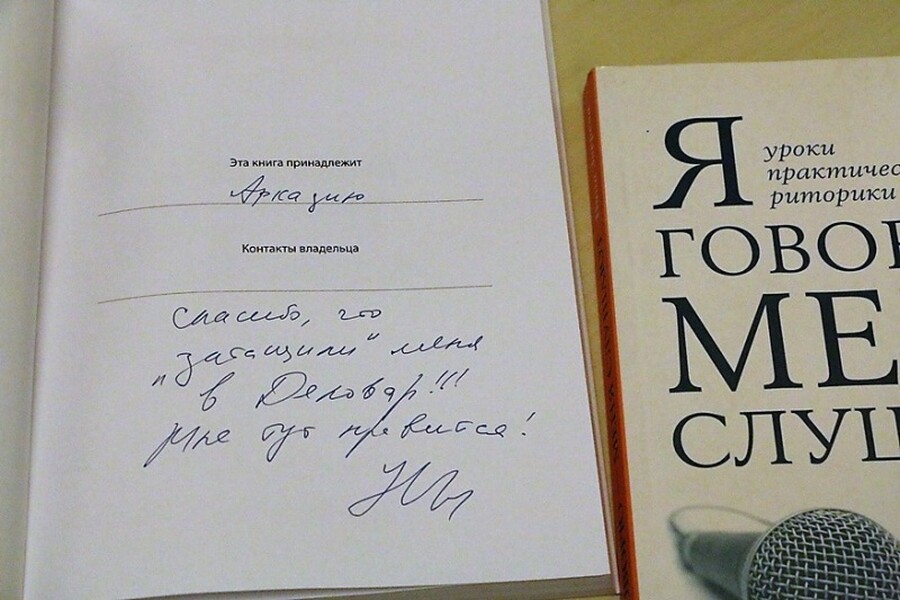 Эта книга принадлежит
Аркадию
Контакты владельца
Спасибо, что
"затащили" меня
в Деловар!!!
Мне тут нравится!
Я
уроки
практичес
риторики
ГОВОР
МЕ
СЛУШ